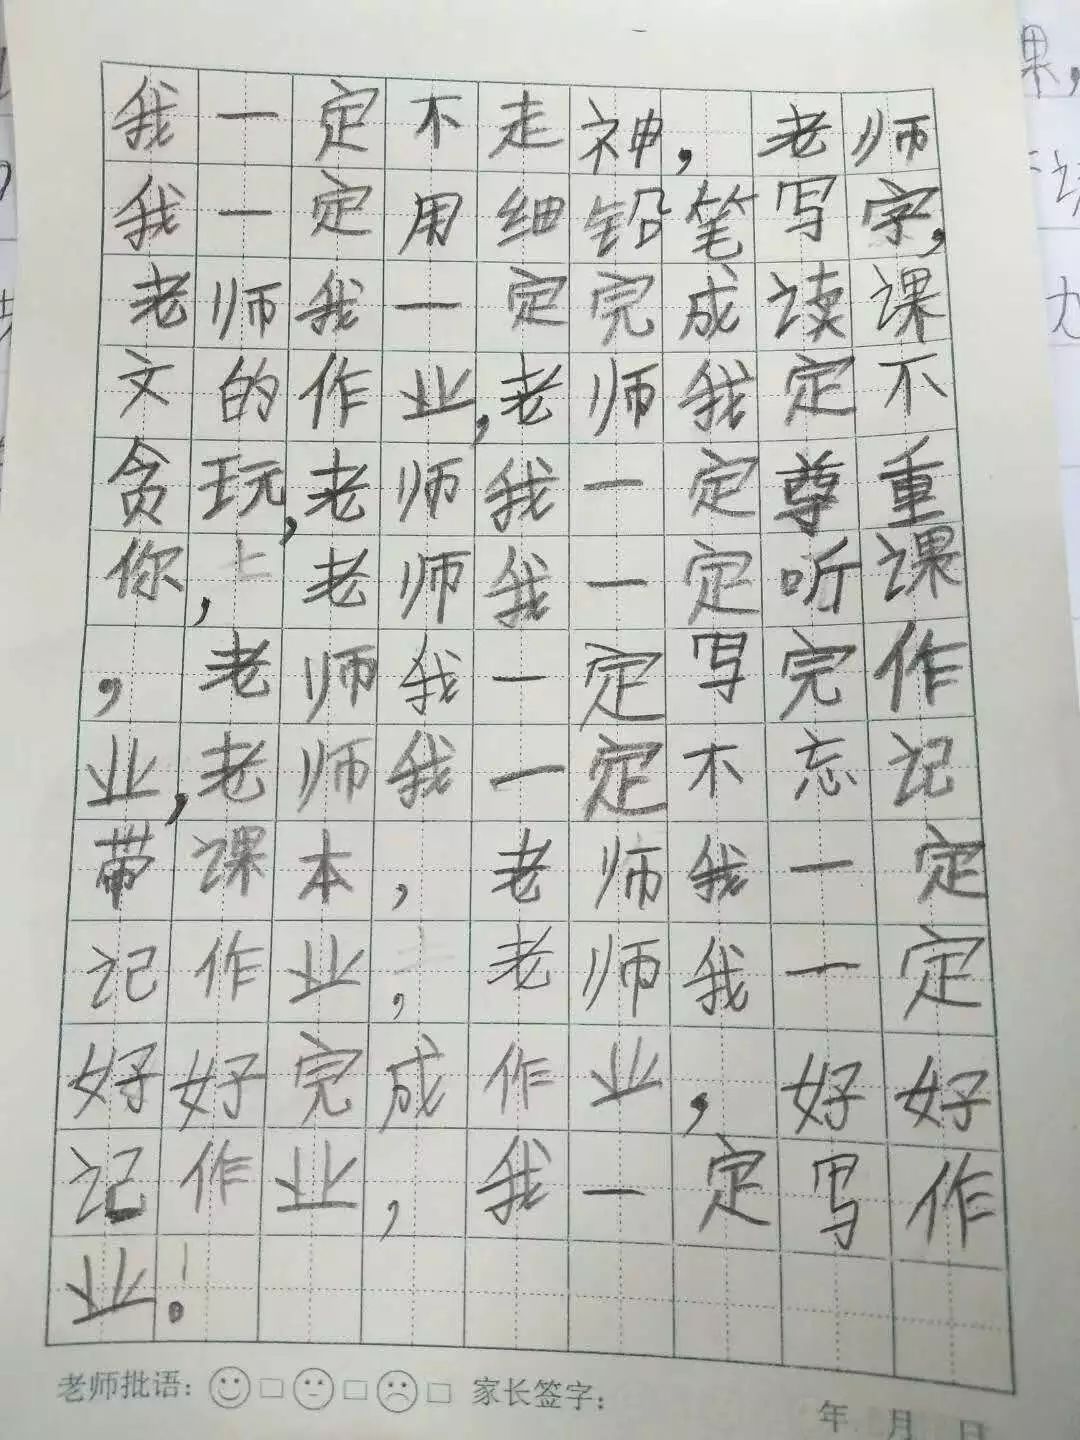 我一定不走神，老师
我一定用细铅笔写字，
老师我一定完成读课
文的作业，老师我定不
贪玩，老师我一定尊重
你，老师我一定听课
，老师我一定写完作
业，老师我一定不忘记
带课本，老师我一定
记作业，老师我一定
好好完成作业，好好
记作业，我一定写作
业！
老师批语：□□□ 家长签字：
年 月 日